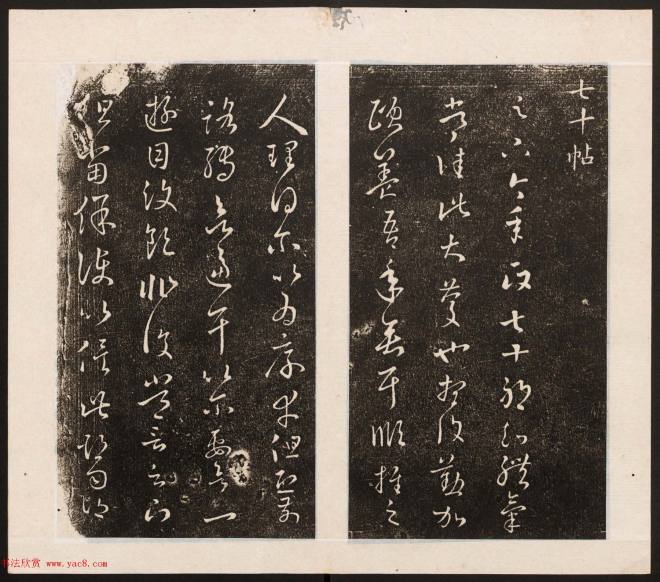 七十帖
足下今年政七十耶知體氣
常佳此大慶也想復懃加
頤養吾年垂耳順推之
人理得爾以為厚幸但恐前
路轉欲逼耳以爾要欲一
遊目汶領非復常言足下
但當保護以俟此期勿謂
书法欣赏 www.yac8.com